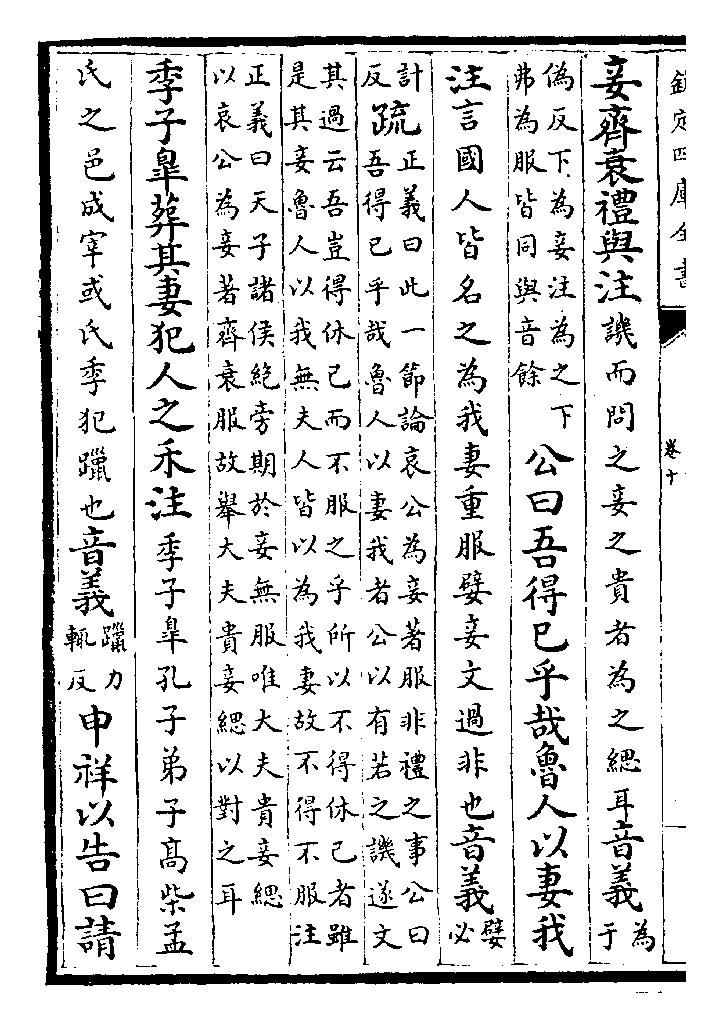 欽定四庫全書
卷十
妾齊衰禮與注譏而問之妾之貴者為之緦耳音義為
于
偽反下為妾注為之下
弗為服皆同與音餘
公曰吾得已乎哉魯人以妻我
注言國人皆名之為我妻重服嬖妾文過非也音義嬖
必
計
反
疏正義曰此一節論哀公為妾著服非禮之事公曰
吾得已乎哉魯人以妻我者公以有若之譏遂文
其過云吾豈得休已而不服之乎所以不得休已者雖
是其妾魯人以我無夫人皆以為我妻故不得不服注
正義曰天子諸侯絕旁期於妾無服唯大夫貴妾緦
以哀公為妾著齊衰服故舉大夫貴妾緦以對之耳
季子臯葬其妻犯人之禾注季子臯孔子弟子高柴孟
氏之邑成宰或氏季犯躐也音義躐力
輒反
申祥以告曰請